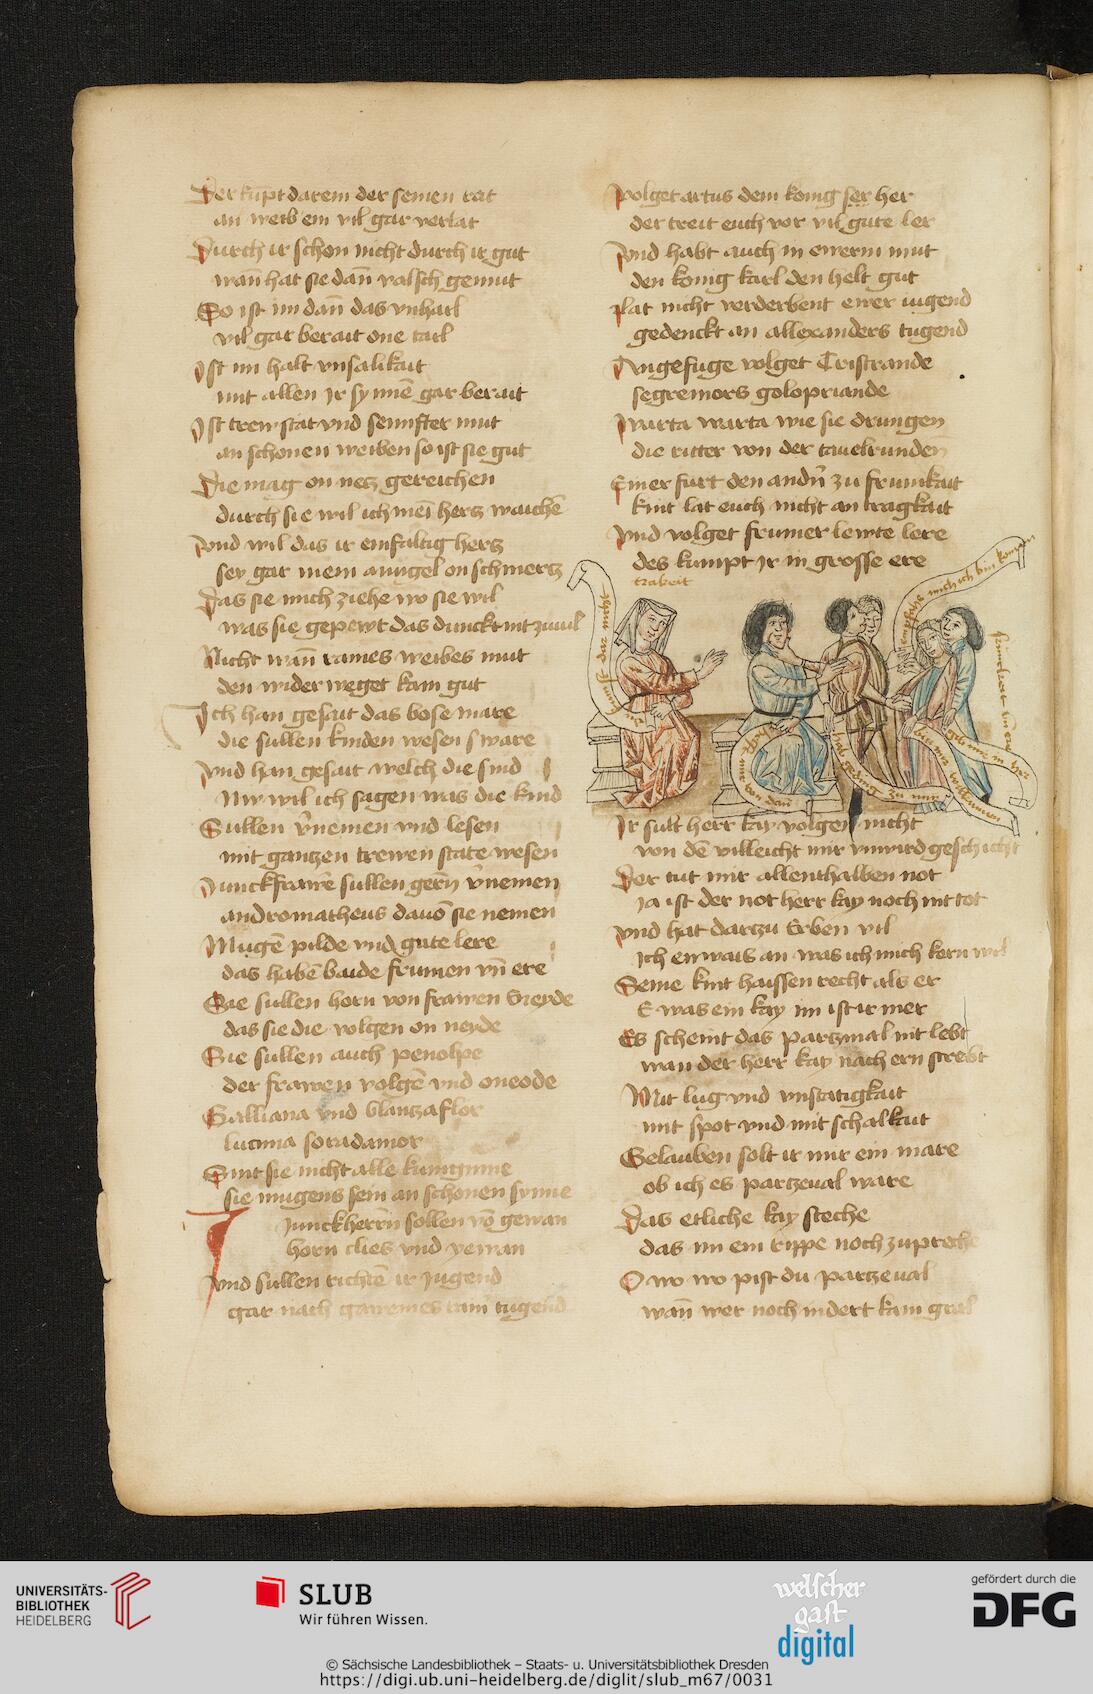 Der kupt darein der seinen rat
an weib ein vil gar verlat
Durch ir schon nicht durch ir gut
wañ hat sie dañ valsch gemut
So ist im dañ das vnhail
vil gar berait one tail
Ist im halt vnsalikait
mit allen Jr synnē gar berait
Ist trew stat vnd sennfter mut
an schonen weiben so ist sie gut
Die mag on netz gereichen
durch sie wil ich mein hertz waichē
Vnd wil das ir einfaltig hertz
sey gar mein anngel on schmertz
Das sie mich ziehe wo sie wil
was sie gepewt das dunckt nit zuuil
Nicht wañ raines weibes mut
den wider weget kain gut
Ich han gesait das bose mare
die sullen kinden wesen sware
Vnd han gesait welch die sind
Nw wil ich sagen was die kind
Sullen v̄nemen vnd lesen
mit gantzen trewen state wesen
Junckfrawē sullen gerñ v̄nemen
andromatheus dauō sie nemen
Mugē pilde vnd gute lere
das habē baide frumen vñ ere
Sie sullen horn von frawen Sreyde
das sie die volgen on neyde
Sie sullen auch penolpe
der frawen volgē vnd oneode
Galliana vnd blantzaflor
lucinia soradamor
Sint sie nicht alle kunginne
sie mugens sein an schonen synne
Junckherrn sollen vō gewan
horn clies vnd yewan
Vnd sullen richtē ir Jugend
gar nach gaweines rain tugend
Volget artus dem konig ser her
der treit euch vor vil gute ler
Vnd habt auch in ewerm mut
den konig karl den helt gut
Lat nicht verderbent ewer iugend
gedenckt an allexanders tugend
Angefuge volget Tristrande
segremors golopriande
Warta warta wie sie drungen
die ritter von der tauelrunden
Einer furt den andñ zu frumkait
kint lat euch nicht an tragkait
Vnd volget frumer lewte lere
des kumpt Jr in grosse ere
trakeit
Ir sult herr kay volgen nicht
von dē villeicht mir vnwird geschicht
Der tut mir allenthalben not
ja ist der not herr kay noch nit tot
Vnd hat dartzu Erben vil
Ich enwais an was ich mich kern wil
Seine kint haissen recht als er
E was ein kay im ist ir mer
Es scheint das partzinal nit lebt
wan der herr kay nach ern strebt
Mit lug vnd vnstatigkait
mit spot vnd mit schalkait
Gelauben solt ir mir ein mare
ob ich es partzeual ware
Das etliche kay steche
das im ein rippe noch zupreche
O wo wo pist du partzeual
wañ wer noch indert kain gral
UNIVERSITÄTS-
BIBLIOTHEK
HEIDELBERG
SLUB
Wir führen Wissen.
welscher
gast
digital
gefördert durch die
DFG
© Sächsische Landesbibliothek – Staats- u. Universitätsbibliothek Dresden
https://digi.ub.uni-heidelberg.de/diglit/slub_m67/0031